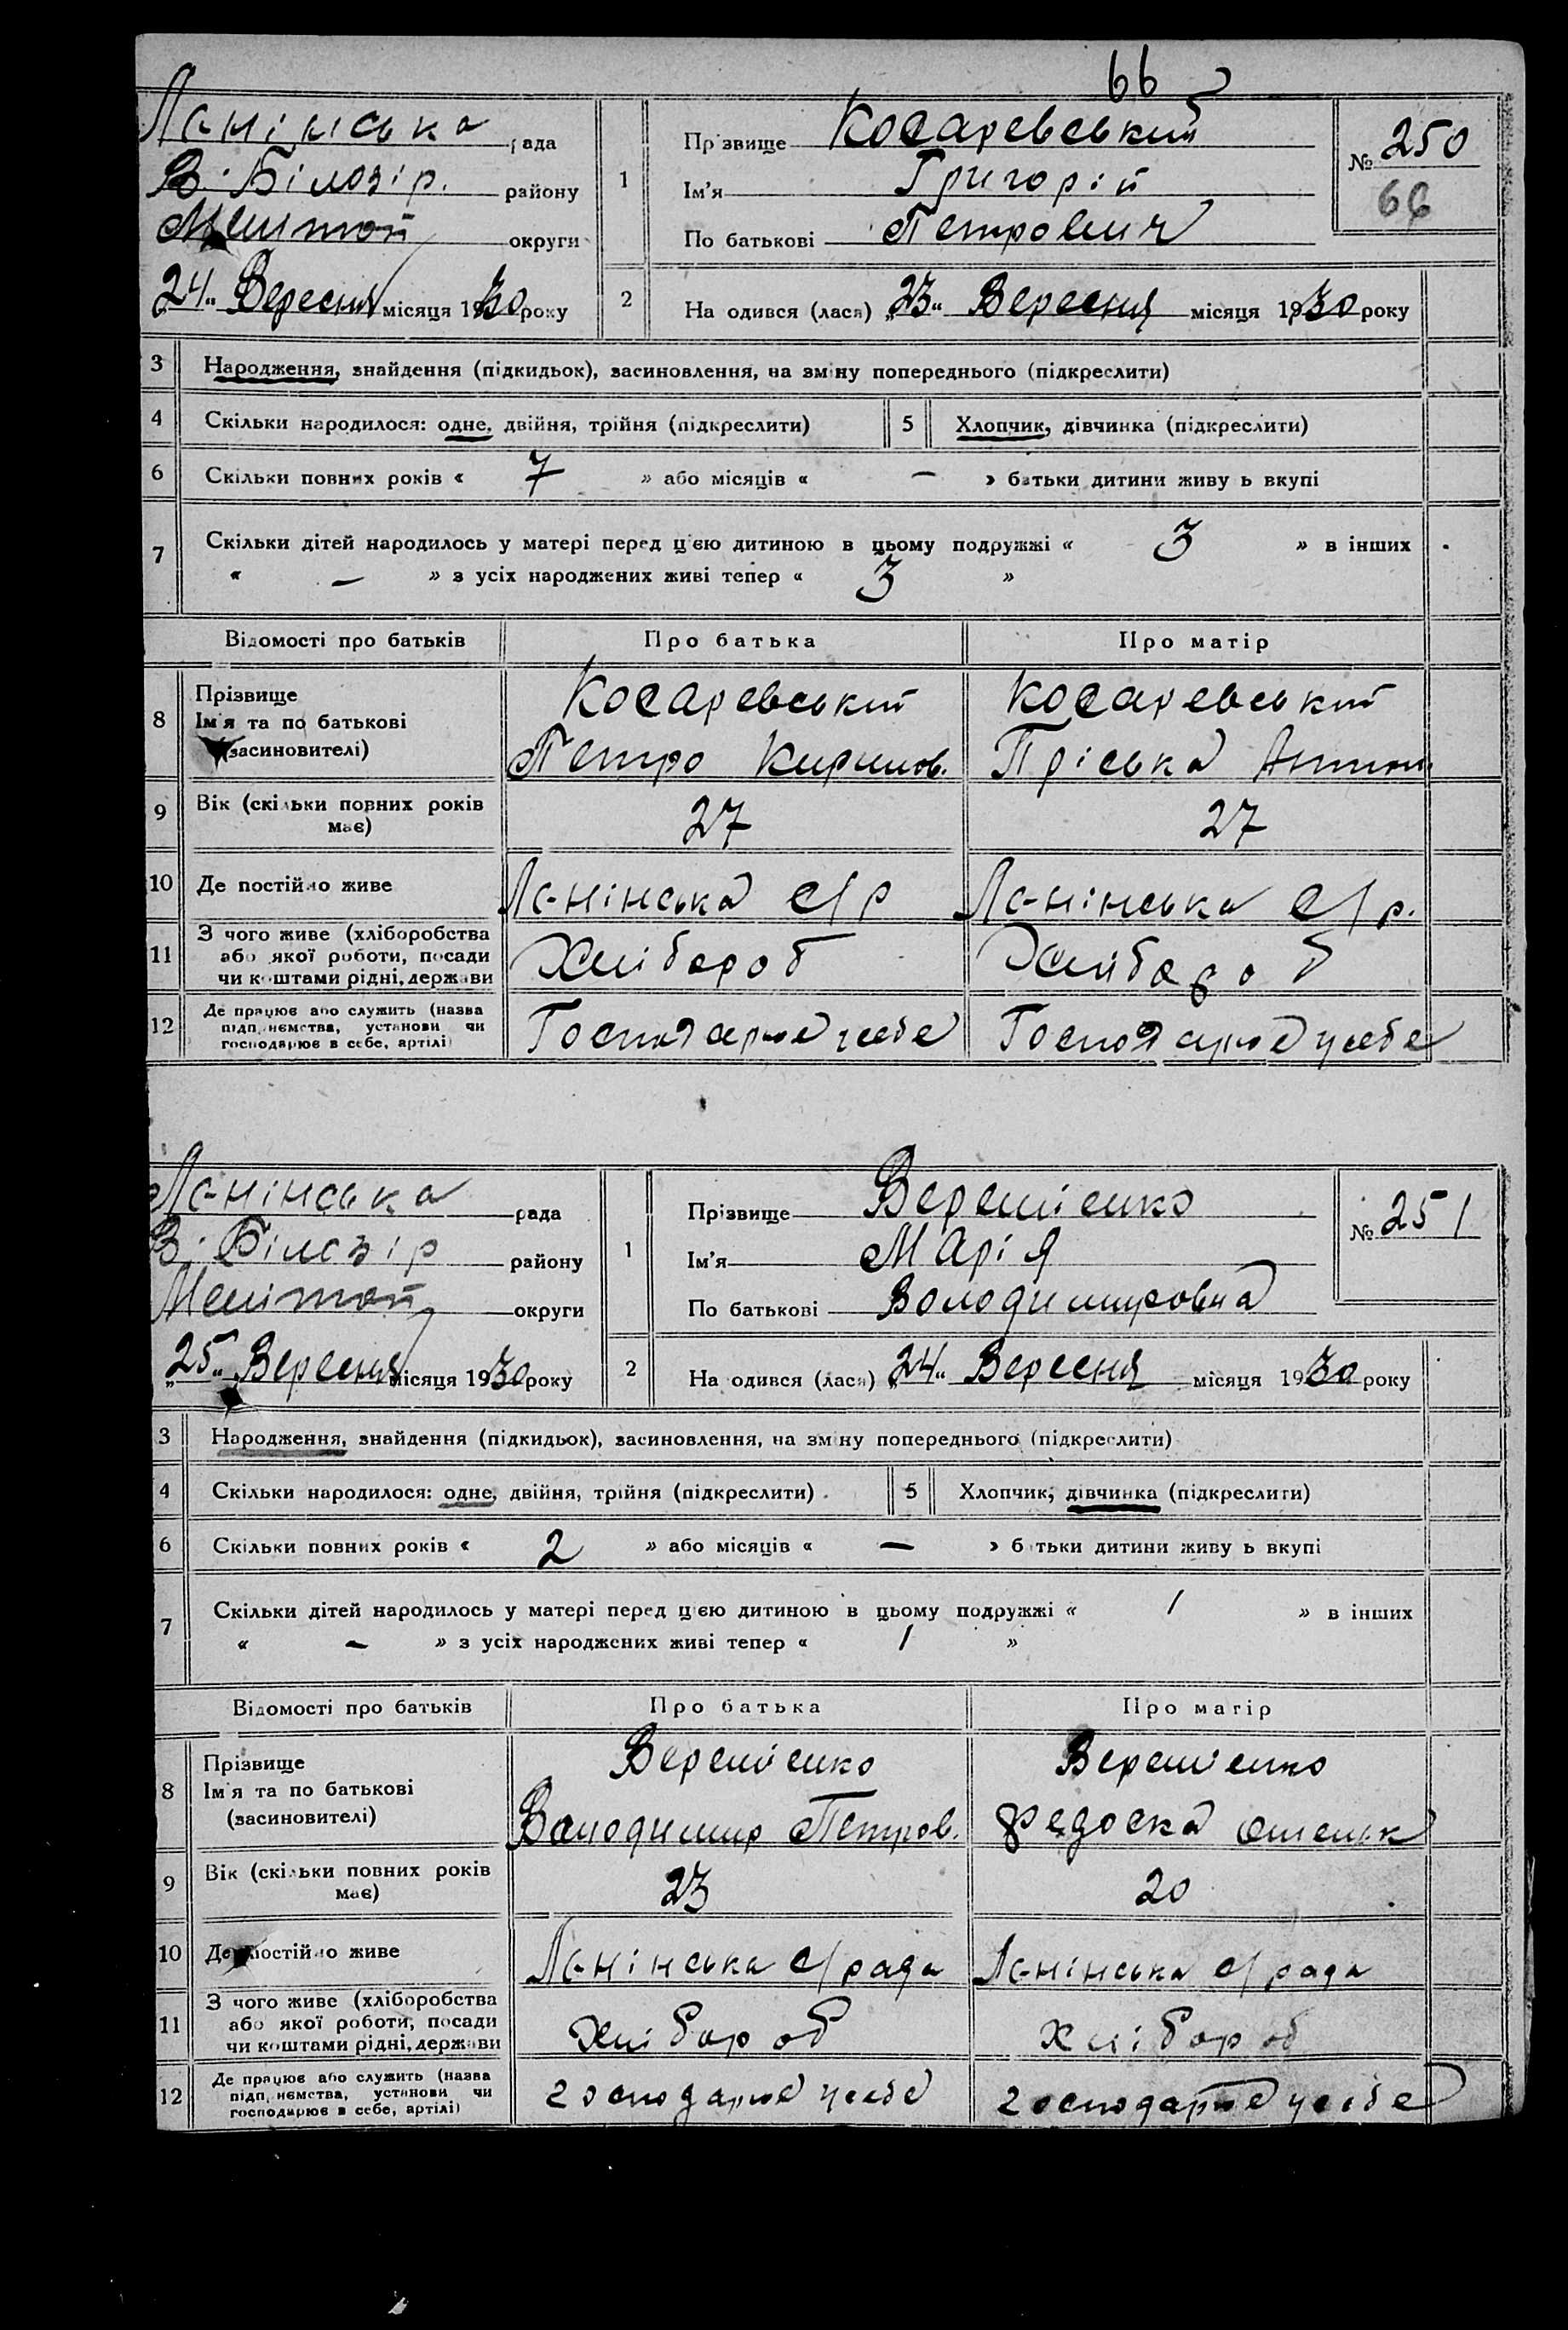 66
Ленінська рада
В. Білозір. району
Меліттоп округи
„24“ Вересня місяця 1930 року
1
Прізвище Косаревський
Ім'я Григорій
По батькові Петрович
№ 250
66
2
На одився (лася) „23“ Вересня місяця 1930 року
3 Народження, знайдення (підкидьок), засиновлення, на зміну попереднього (підкреслити)
4 Скільки народилося: одне, двійня, трійня (підкреслити) 5 Хлопчик, дівчинка (підкреслити)
6 Скільки повних років « 7 » або місяців « — » батьки дитини живу ь вкупі
7 Скільки дітей народилось у матері перед цією дитиною в цьому подружжі « 3 » в інших
« — » з усіх народжених живі тепер « 3 »
Відомості про батьків Про батька Про матір
8 Прізвище Косаревський Косаревський
Ім'я та по батькові
(засиновителі) Петро Кирилов. Пріська Антон.
9 Вік (скільки повних років має) 27 27
10 Де постійно живе Ленінська с/р Ленінська с/р.
11 З чого живе (хліборобства
або якої роботи, посади
чи коштами рідні, держави Хлібороб Хлібороб
12 Де працює або служить (назва
підприємства, установи чи
господарює в себе, артілі) Господарює у себе Господарює у себе
Ленінська рада
В. Білозір району
Меліттоп округи
„25“ Вересня місяця 1930 року
1
Прізвище Веремієнко
Ім'я Марія
По батькові Володимировна
№ 251
2
На одився (лася) „24“ Вересня місяця 1930 року
3 Народження, знайдення (підкидьок), засиновлення, на зміну попереднього (підкреслити)
4 Скільки народилося: одне, двійня, трійня (підкреслити) 5 Хлопчик, дівчинка (підкреслити)
6 Скільки повних років « 2 » або місяців « — » батьки дитини живу ь вкупі
7 Скільки дітей народилось у матері перед цією дитиною в цьому подружжі « 1 » в інших
« — » з усіх народжених живі тепер « 1 »
Відомості про батьків Про батька Про матір
8 Прізвище Веремієнко Веремієнко
Ім'я та по батькові
(засиновителі) Володимир Петров. Федоска Омельк
9 Вік (скільки повних років має) 23 20
10 Де постійно живе Ленінська с/рада Ленінська с/рада
11 З чого живе (хліборобства
або якої роботи, посади
чи коштами рідні, держави хлібороб хлібороб
12 Де працює або служить (назва
підприємства, установи чи
господарює в себе, артілі) господарює у себе господарює у себе